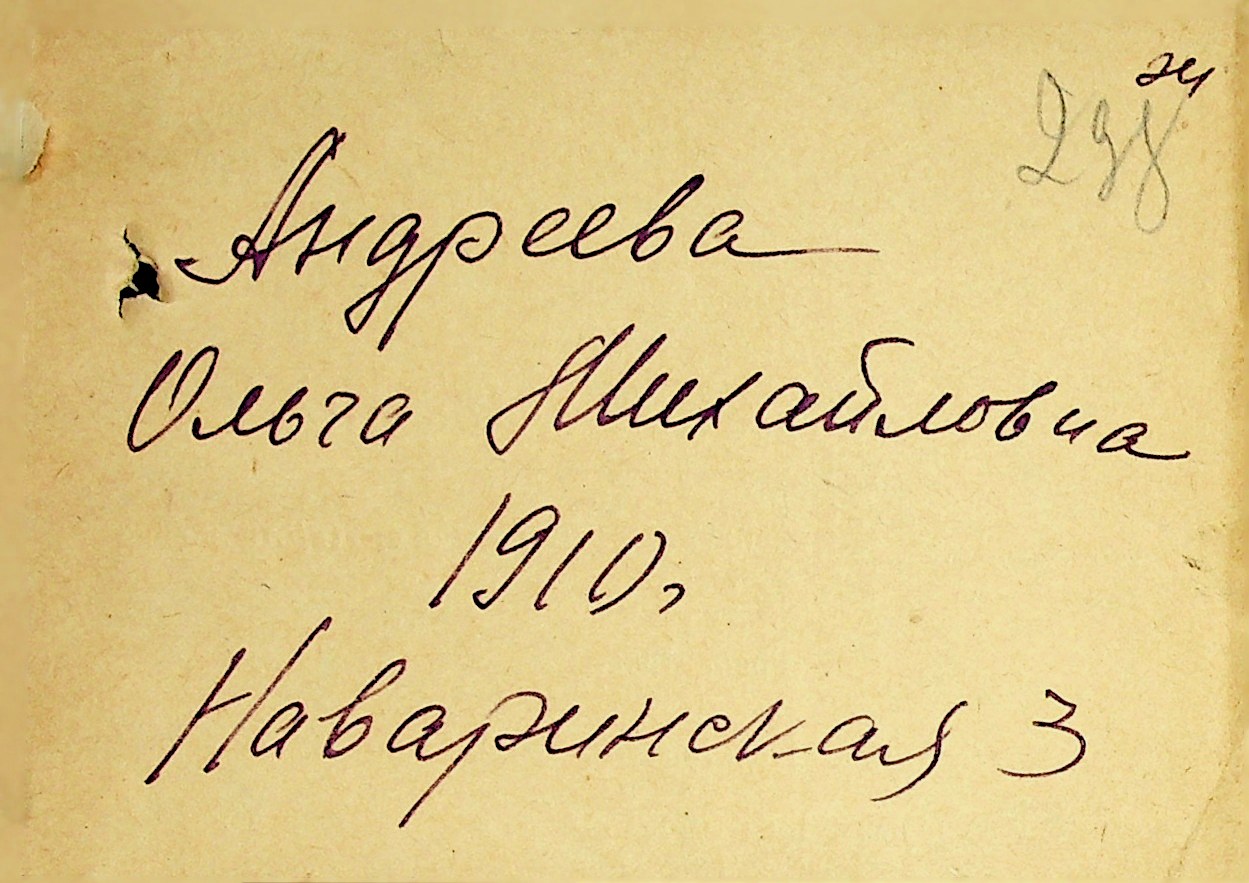 298
Андреева
Ольга Михайловна
1910г
Наваринская 3